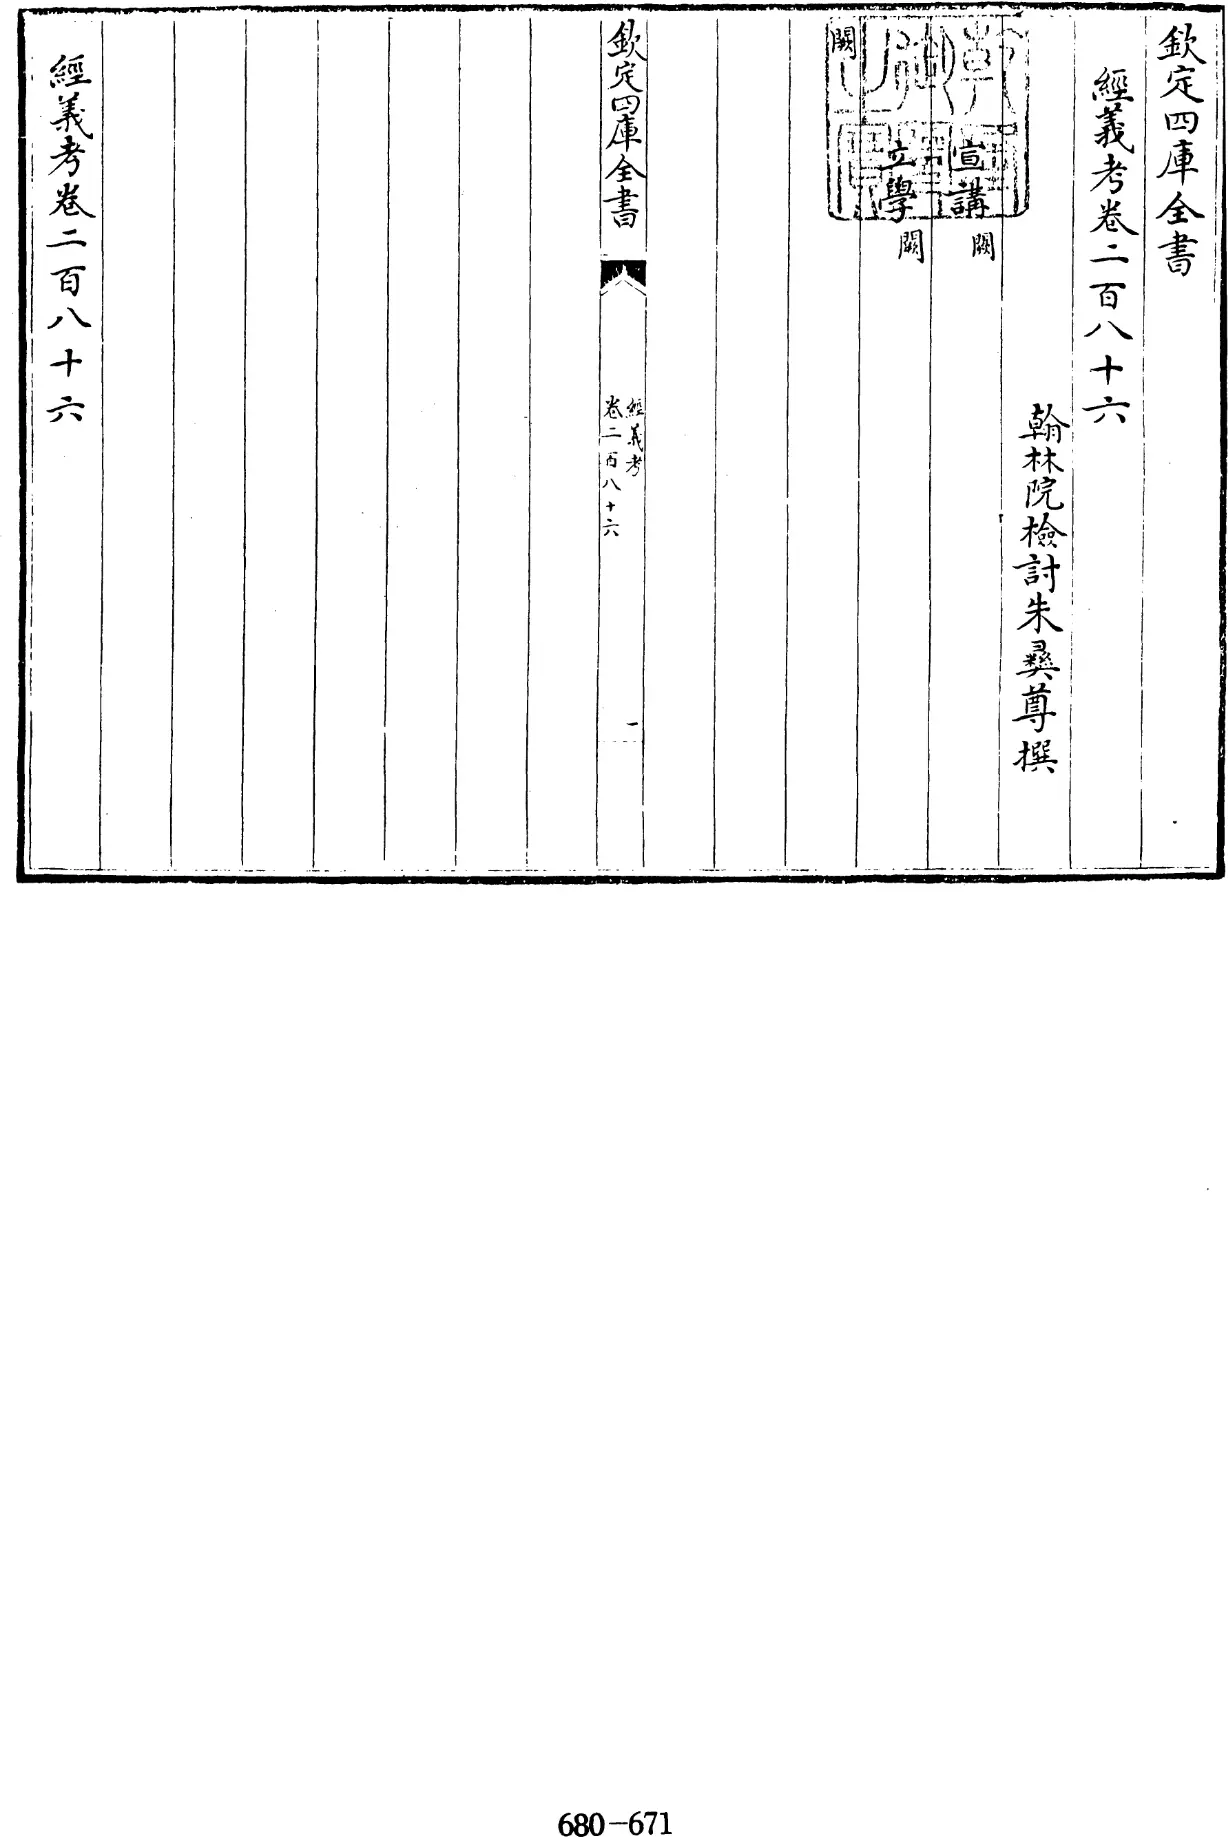 欽定四庫全書
經義考卷二百八十六
翰林院檢討朱彝尊撰
宣講闕
立學闕
闕
欽定四庫全書
經義考
卷二百八十六
一
經義考卷二百八十六
680-671